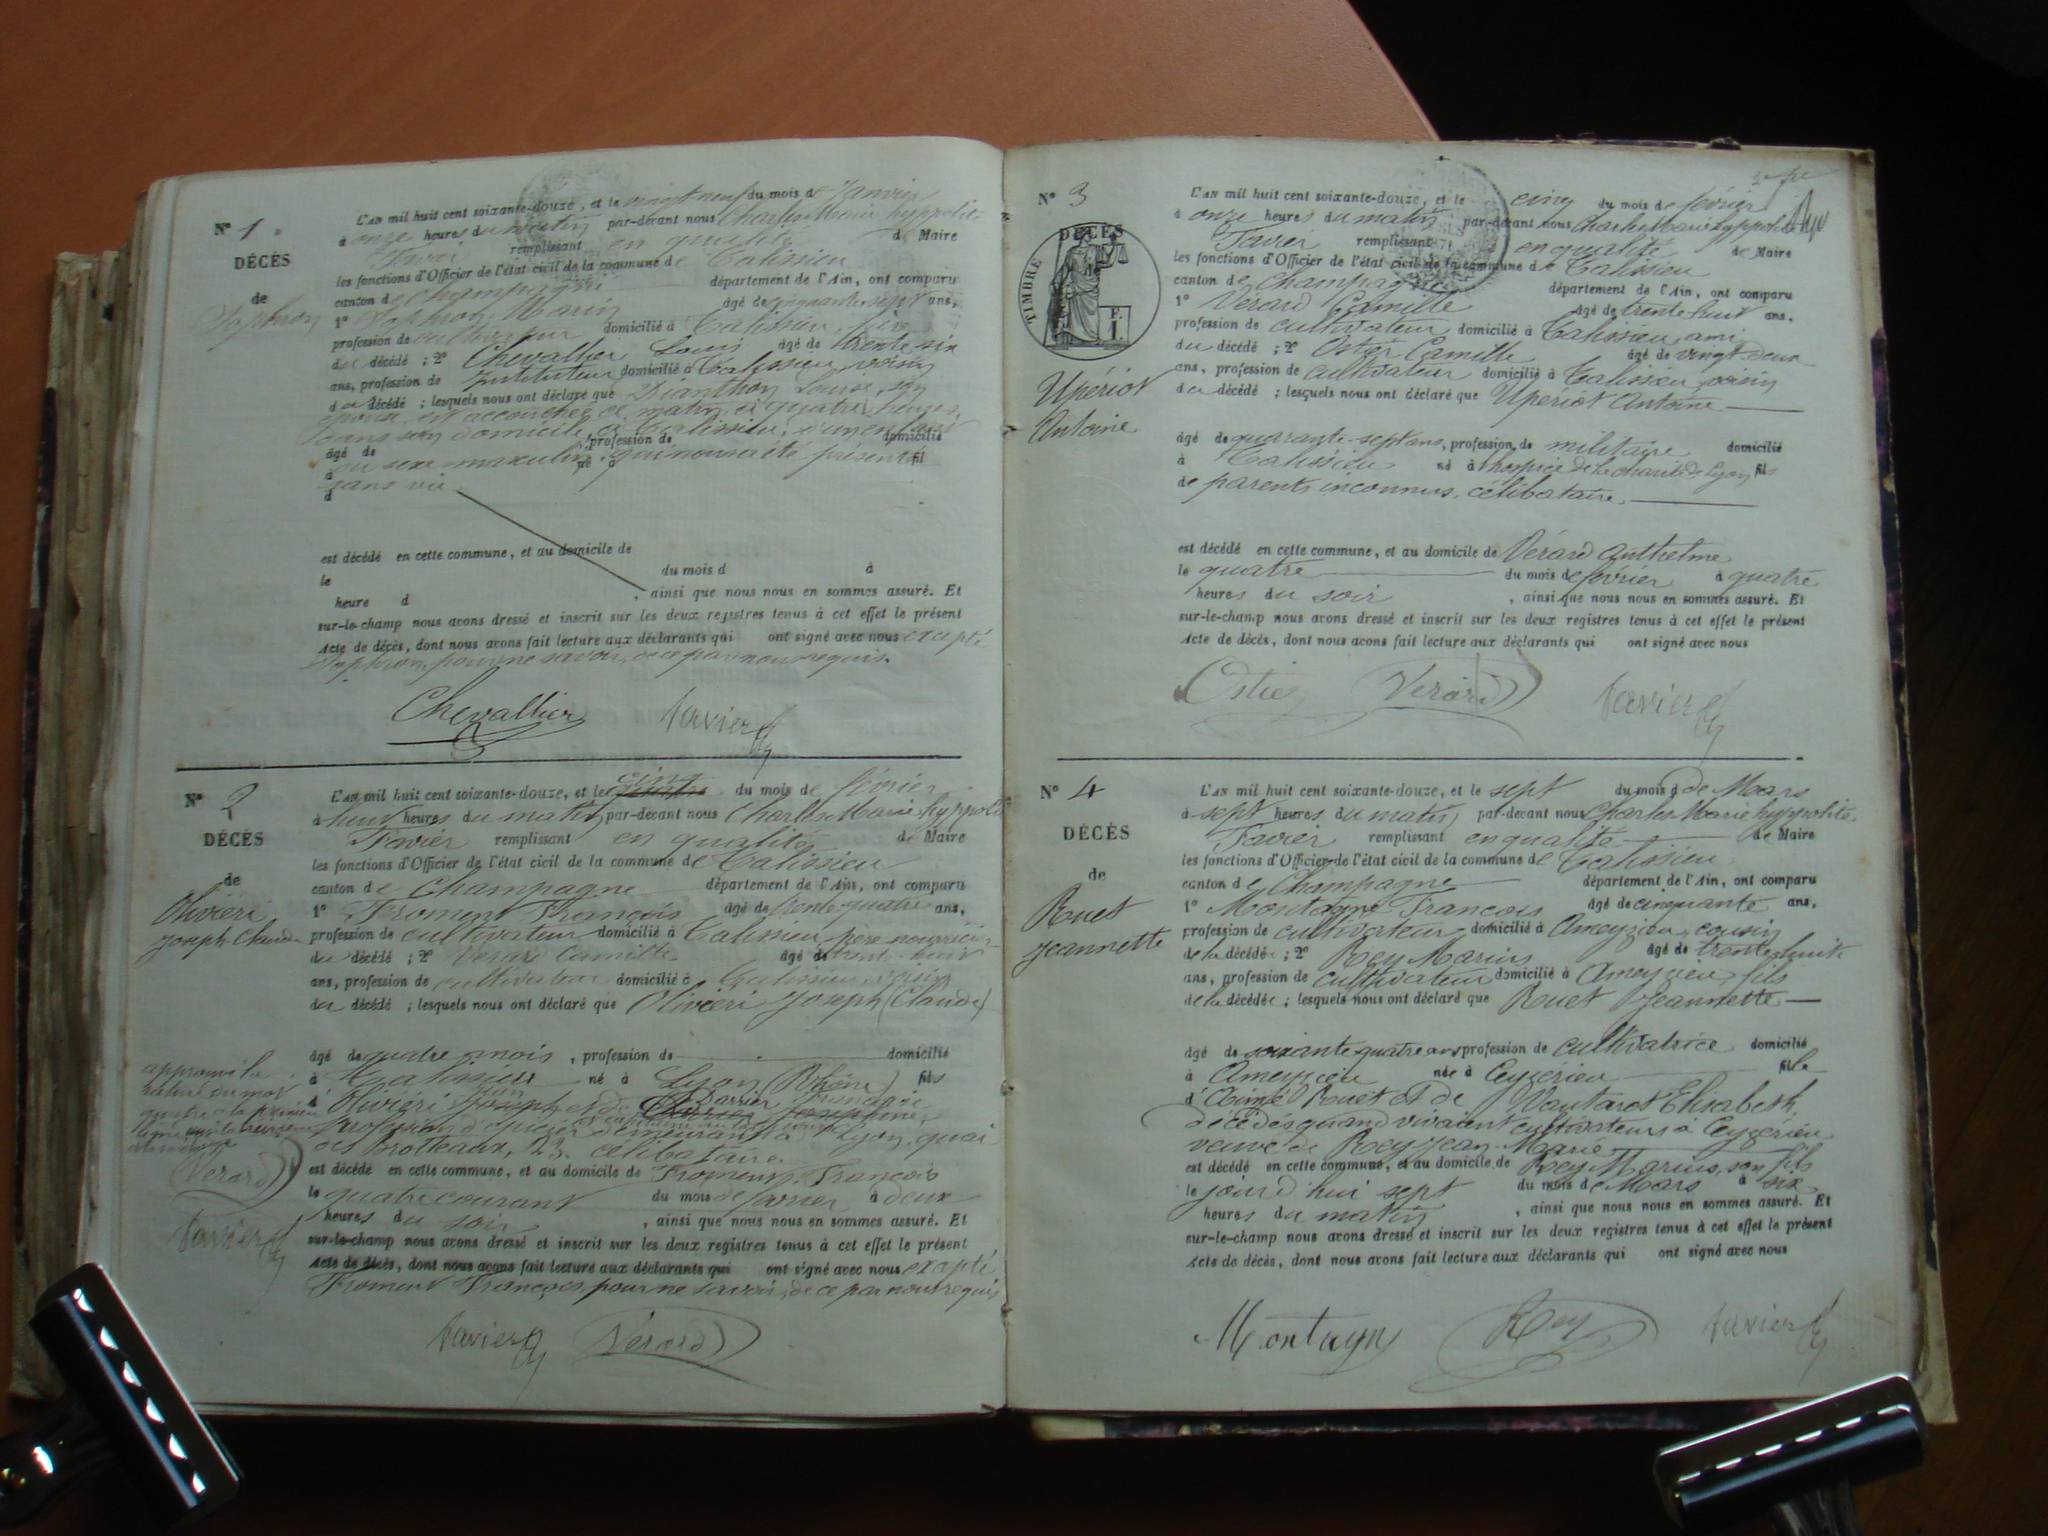 N° 1
DÉCÈS
de
Japhron
L'AN mil huit cent soixante-douze, et le vingt neuf du mois de Janvier
à onze heures du matin par-devant nous Charles Marie hyppolite
Favier remplissant en qualité de Maire
les fonctions d'Officier de l'état civil de la commune de Talissieu
canton de Champagne département de l'Ain, ont comparu
1° Japhron Marin âgé de cinquante sept ans,
profession de cultivateur domicilié à Talissieu, père
du décédé ; 2° Chevallier Louis âgé de trente six
ans, profession de Instituteur domicilié à Talissieu, voisin
du décédé ; lesquels nous ont déclaré que Dianthon Louise, son
épouse est accouchée ce matin, à quatre heures,
dans son domicile à Talissieu, d'un enfant
âgé de , profession de domicilié
du sexe masculin, qui nous a été présenté
à né à fil
sans vie
d
est décédé en cette commune, et au domicile de
le du mois d à
heure d , ainsi que nous nous en sommes assuré. Et
sur-le-champ nous avons dressé et inscrit sur les deux registres tenus à cet effet le présent
Acte de décès, dont nous avons fait lecture aux déclarants qui ont signé avec nous excepté
Japhron, pour ne savoir, de ce par nous requis.
Chevallier Favier
N° 2
DÉCÈS
de
Olivieri
Joseph Claude
L'AN mil huit cent soixante-douze, et le quatre cinq du mois de février
à heures du matin par-devant nous Charles Marie hyppolite
Favier remplissant en qualité de Maire
les fonctions d'Officier de l'état civil de la commune de Talissieu
canton de Champagne département de l'Ain, ont comparu
1° Froment François âgé de trente quatre ans,
profession de cultivateur domicilié à Talissieu, père nourricier
du décédé ; 2° Verard Camille âgé de trente huit
ans, profession de cultivateur domicilié à Talissieu, voisin
du décédé ; lesquels nous ont déclaré que Olivieri Joseph (Claude)
âgé de quatre mois , profession de domicilié
à Talissieu né à Lyon (Rhône) fils
d'Olivieri Joseph et de Josephine,
profession d'épicier demeurant à Lyon, quai
des Brotteaux, 23. célibataire.
est décédé en cette commune, et au domicile de Froment François
le quatre courant du mois de février à deux
heures du soir , ainsi que nous nous en sommes assuré. Et
sur-le-champ nous avons dressé et inscrit sur les deux registres tenus à cet effet le présent
Acte de décès, dont nous avons fait lecture aux déclarants qui ont signé avec nous excepté
Froment François, pour ne savoir, de ce par nous requis
approuvé la
rature du mot
quatre à la première
ligne
Verard
Favier
Favier Verard
N° 3
TIMBRE DÉCÈS
F. 1.
Upériot
Antoine
L'AN mil huit cent soixante-douze, et le cinq du mois de février
à onze heures du matin par-devant nous Charles Marie hyppolite
Favier remplissant en qualité de Maire
les fonctions d'Officier de l'état civil de la commune de Talissieu
canton de Champagne département de l'Ain, ont comparu
1° Verard Camille âgé de trente huit ans,
profession de cultivateur domicilié à Talissieu, ami
du décédé ; 2° Camille âgé de vingt deux
ans, profession de cultivateur domicilié à Talissieu, voisin
du décédé ; lesquels nous ont déclaré que Upériot Antoine
âgé de quarante-sept ans, profession de militaire domicilié
à Talissieu né à l'hospice de la charité de Lyon fils
de parents inconnus, célibataire.
est décédé en cette commune, et au domicile de Vérard Anthelme
le quatre du mois de février à quatre
heures du soir , ainsi que nous nous en sommes assuré. Et
sur-le-champ nous avons dressé et inscrit sur les deux registres tenus à cet effet le présent
Acte de décès, dont nous avons fait lecture aux déclarants qui ont signé avec nous
Verard Favier
N° 4
DÉCÈS
de
Ruet
Jeannette
L'AN mil huit cent soixante-douze, et le sept du mois d de Mars
à sept heures du matin par-devant nous Charles Marie hyppolite
Favier remplissant en qualité de Maire
les fonctions d'Officier de l'état civil de la commune de Talissieu
canton de Champagne département de l'Ain, ont comparu
1° Montagne François âgé de cinquante ans,
profession de cultivateur domicilié à Ameyzieu, cousin
de la décédée ; 2° Rey Marius âgé de trente huit
ans, profession de cultivateur domicilié à Ameyzieu, fils
de la décédée ; lesquels nous ont déclaré que Ruet Jeannette
âgé de soixante quatre ans profession de cultivatrice domicilié
à Ameyzieu née à Ceyzerieu fille
d'Aimé Ruet et de Vautaret Elisabeth,
décédés quand vivaient cultivateurs à Ceyzérieu
veuve de Rey Jean-Marie
est décédé en cette commune, et au domicile de Rey Marius, son fils
le jourd'hui sept du mois de Mars à six
heures du matin , ainsi que nous nous en sommes assuré. Et
sur-le-champ nous avons dressé et inscrit sur les deux registres tenus à cet effet le présent
Acte de décès, dont nous avons fait lecture aux déclarants qui ont signé avec nous
Montagn Rey Favier